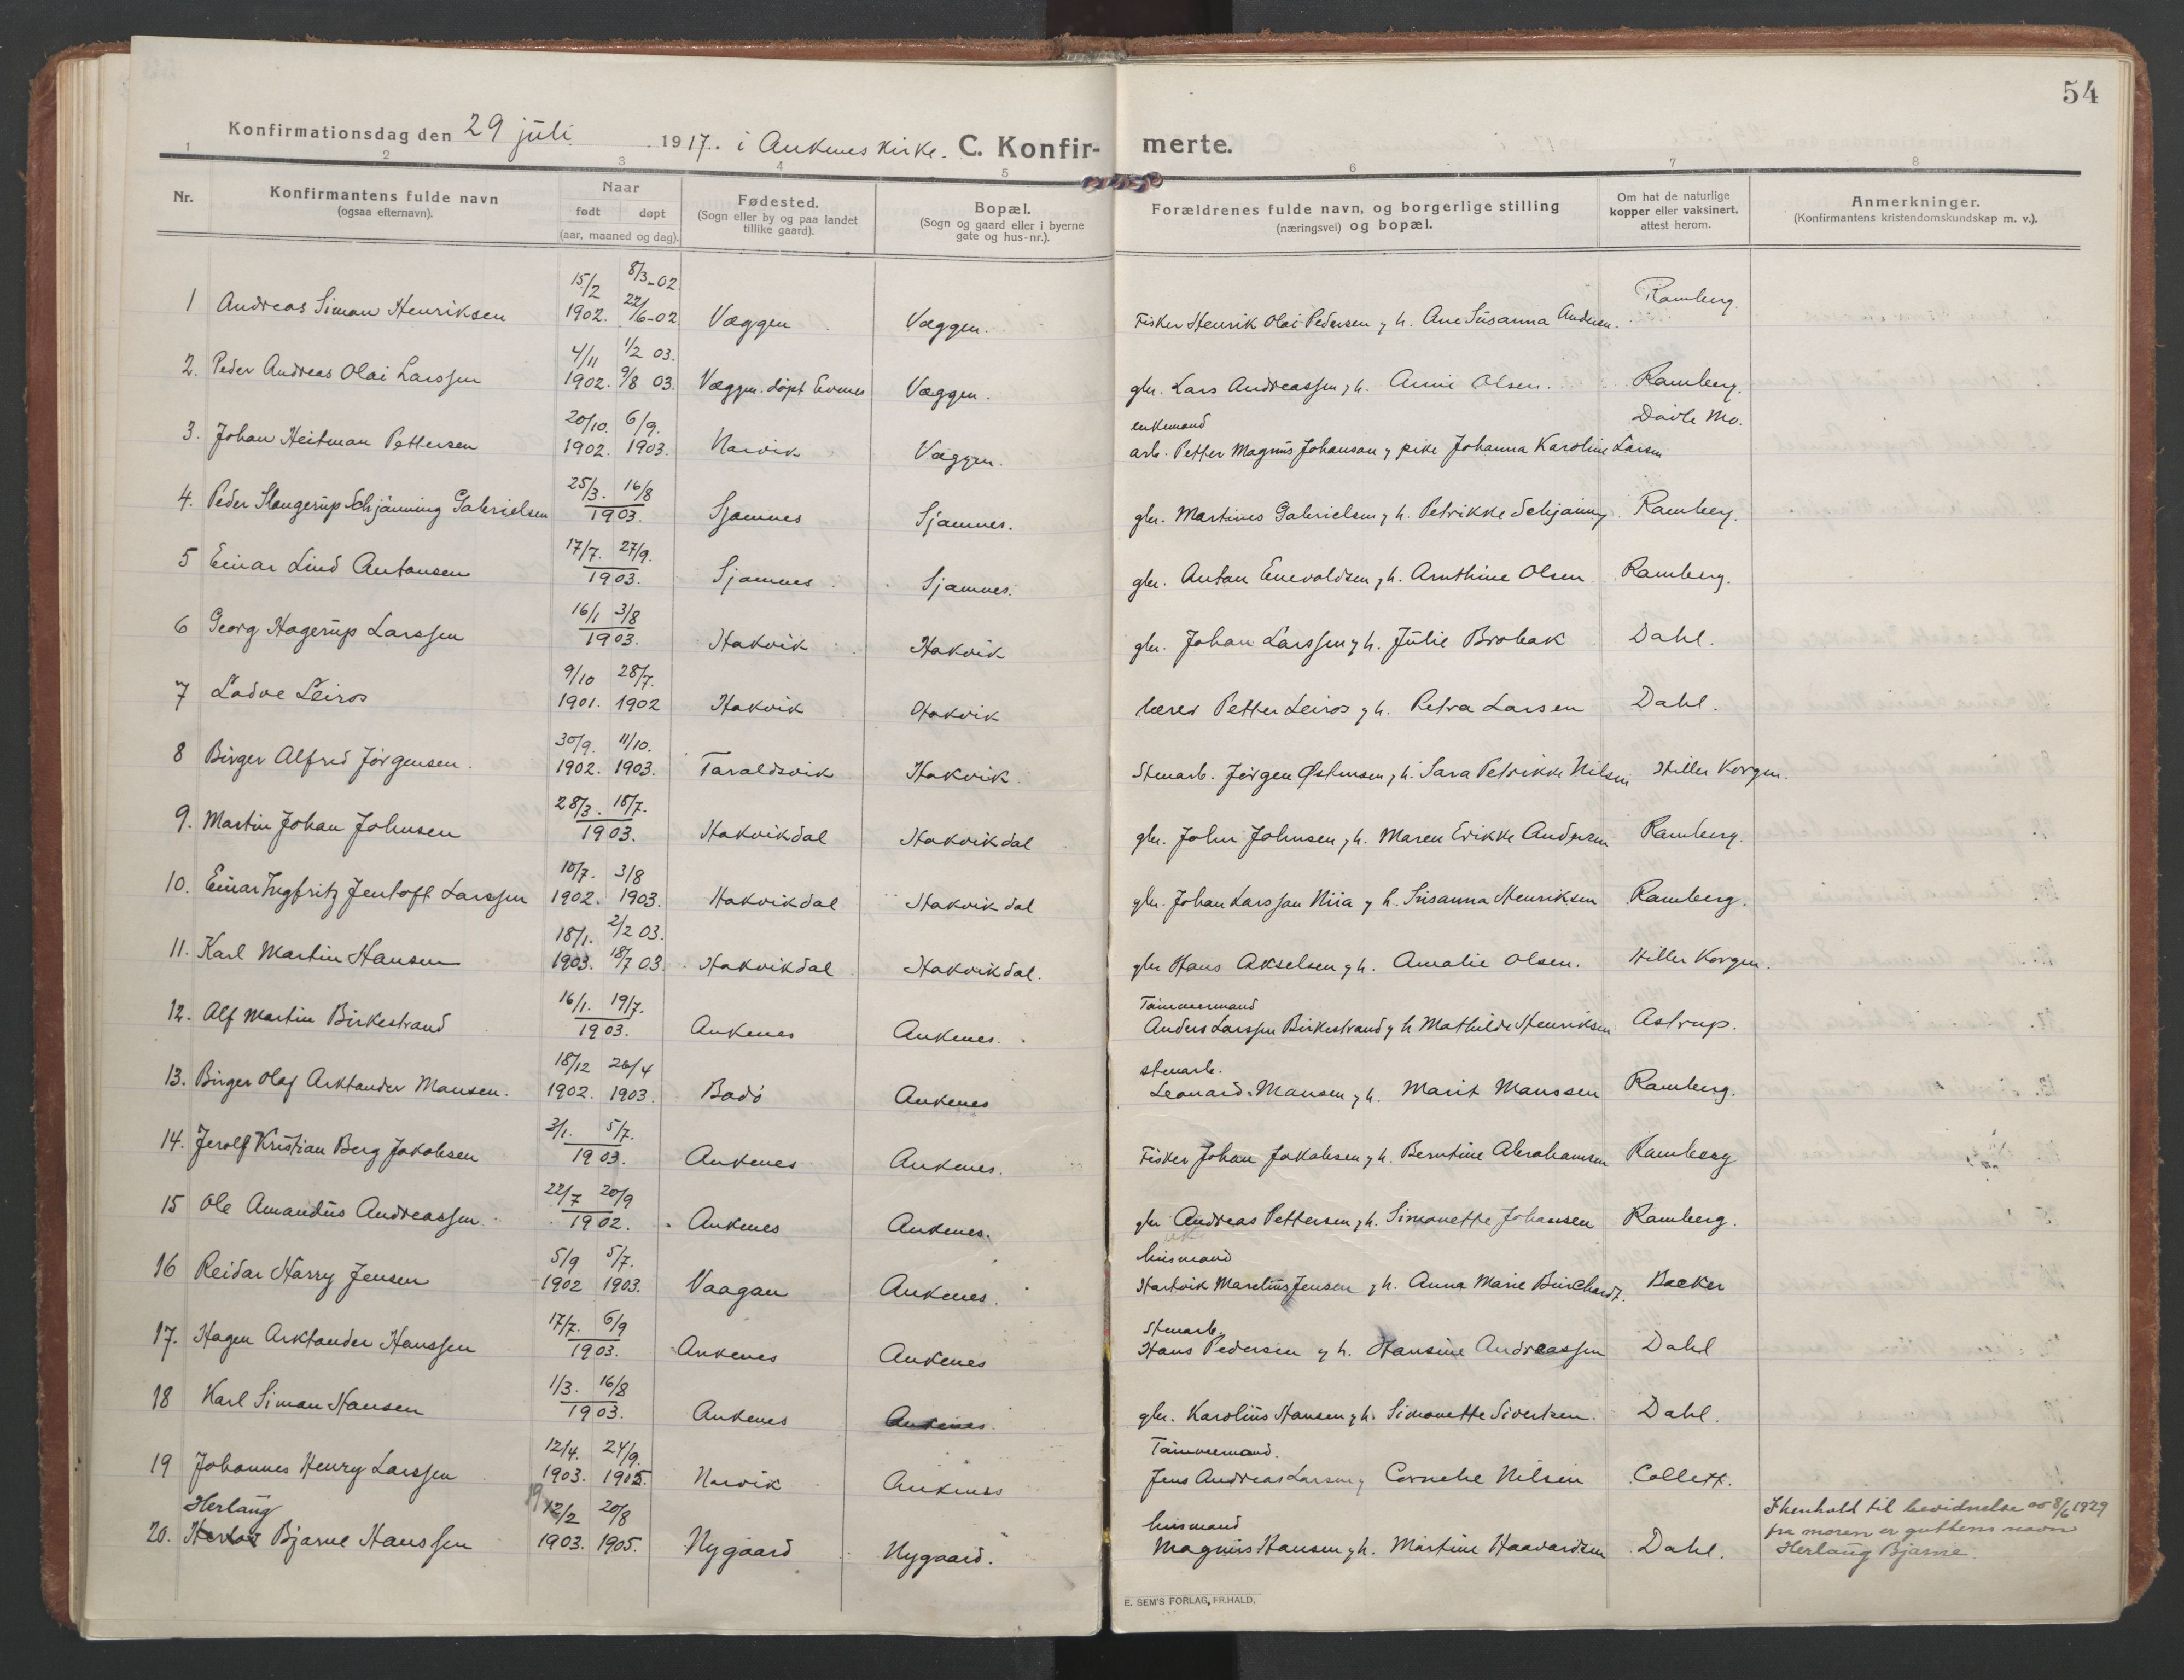 54
Konfirmationsdag den 29 juli 1917. i Ankenes kirke. C. Konfir- merte.
1 2 3 4 5 6 7 8
Nr. Konfirmantens fulde navn (ogsaa efternavn). Naar født døpt (aar, maaned og dag). Fødested. (Sogn eller by og paa landet tillike gaard). Bopæl. (Sogn og gaard eller i byerne gate og hus-nr.). Forældrenes fulde navn, og borgerlige stilling (næringsvei) og bopæl. Om hat de naturlige kopper eller vaksinert, attest herom. Anmerkninger. (Konfirmantens kristendomskundskap m. v.).
15/2 8/3-02
1 Andreas Simon Henriksen 1902. 22/6-02 Væggen Væggen. Fisker Henrik Olai Pedersen y h. Ane Susanna Andersen. Ramberg.
4/11 1/2 03.
2. Peder Andreas Olai Larssen 1902. 9/8 03. Væggen. døpt Evenes Væggen. gbr. Lars Andreassen y h. Anne Olsen. Ramberg.
20/10. 6/9. enkemand
3. Johan Heitman Pettersen 1902. 1903. Narvik Væggen. arb. Petter Magnus Johansen y pike Johanna Karoline Larsen Davle Mo.
25/3. 16/8
4. Peder Slengerup Schjønning Gabrielsen 1903. Sjømnes Sjømnes. gbr. Martines Gabrielsen y h. Petrikke Schjønning Ramberg.
17/7. 27/9.
5 Einar Lind Antonsen 1903. Sjømnes Sjømnes. gbr. Anton Enevoldsen y h. Arnthine Olsen Ramberg.
16/1 3/8
6 Georg Hagerup Larssen 1903. Hakvik Hakvik gbr. Johan Larssen y h. Julie Brobak Dahl.
9/10 28/7.
7 Lodve Leiros 1901. 1902 Hakvik Hakvik lærer Petter Leiros y h. Petra Larsen Dahl.
30/9. 11/10.
8 Birger Alfred Jørgensen. 1902. 1903. Taraldsvik Hakvik. Stenarb. Jørgen Østensen y h. Sara Petrikke Nilsen Hiller Korgen.
28/3. 18/7.
9. Martin Johan Johnsen 1903. Hakvikdal Hakvikdal gbr. John Johnsen y h. Maren Erikke Andersen Ramberg.
10/7. 3/8
10. Einar Ingfritz Jentoft Larssen 1902. 1903. Hakvikdal Hakvikdal gbr. Johan Larssen Niia y h. Susanna Henriksen Ramberg.
18/1. 2/2 03.
11. Karl Martin Hansen 1903. 18/7 03. Hakvikdal Hakvikdal. gbr Hans Akselsen y h. Amalie Olsen. Hiller Korgen.
16/1. 19/7. Tømmermand
12. Alf Martin Birkestrand 1903. Ankenes Ankenes. Anders Larssen Birkestrand y h Mathilde Henriksen Astrup.
18/12 26/4 stenarb.
13. Birger Olaf Arktander Mansen. 1902. 1903. Bodö Ankenes Leonard Mansen y h. Marit Manssen Ramberg.
3/1. 5/7.
14. Jerolf Kristian Berg Jakobsen 1903. Ankenes Ankenes. Fisker Johan Jakobsen y h. Berntine Abrahamsen Ramberg
22/7 20/9
15 Ole Amandus Andreassen 1902. Ankenes Ankenes. gbr Andreas Pettersen y h. Simonette Johansen Ramberg.
5/9 5/7. husmand
16 Reidar Harry Jensen 1902 1903. Vaagan Ankenes. Hartvik Marelius Jensen y h. Anna Marie Burchardt. Backer
17/7. 6/9 Stenarb.
17. Hagen Arktander Hanssen 1903. Ankenes Ankenes Hans Pedersen y h. Hansine Andreassen Dahl
1/3. 16/8
18 Karl Simon Hansen 1903. Ankenes Ankenes. gbr. Karolius Hansen y h. Simonette Sivertsen. Dahl.
12/4. 24/9. Tømmermand.
19 Johannes Henry Larssen 1903. 1905. Narvik Ankenes Jens Andreas Larsen y Cornelie Nilsen Collett.
Herlaug 12/2 20/8 husmand I henhold til bevidnelse av 8/6 1929
20. Bjarne Hanssen 1903. 1905. Nygaard Nygaard. Magnus Hansen y h. Martine Haavardsen Dahl. fra moren er guttens navn
Herlaug Bjarne.
E. SEM'S FORLAG, FR.HALD.